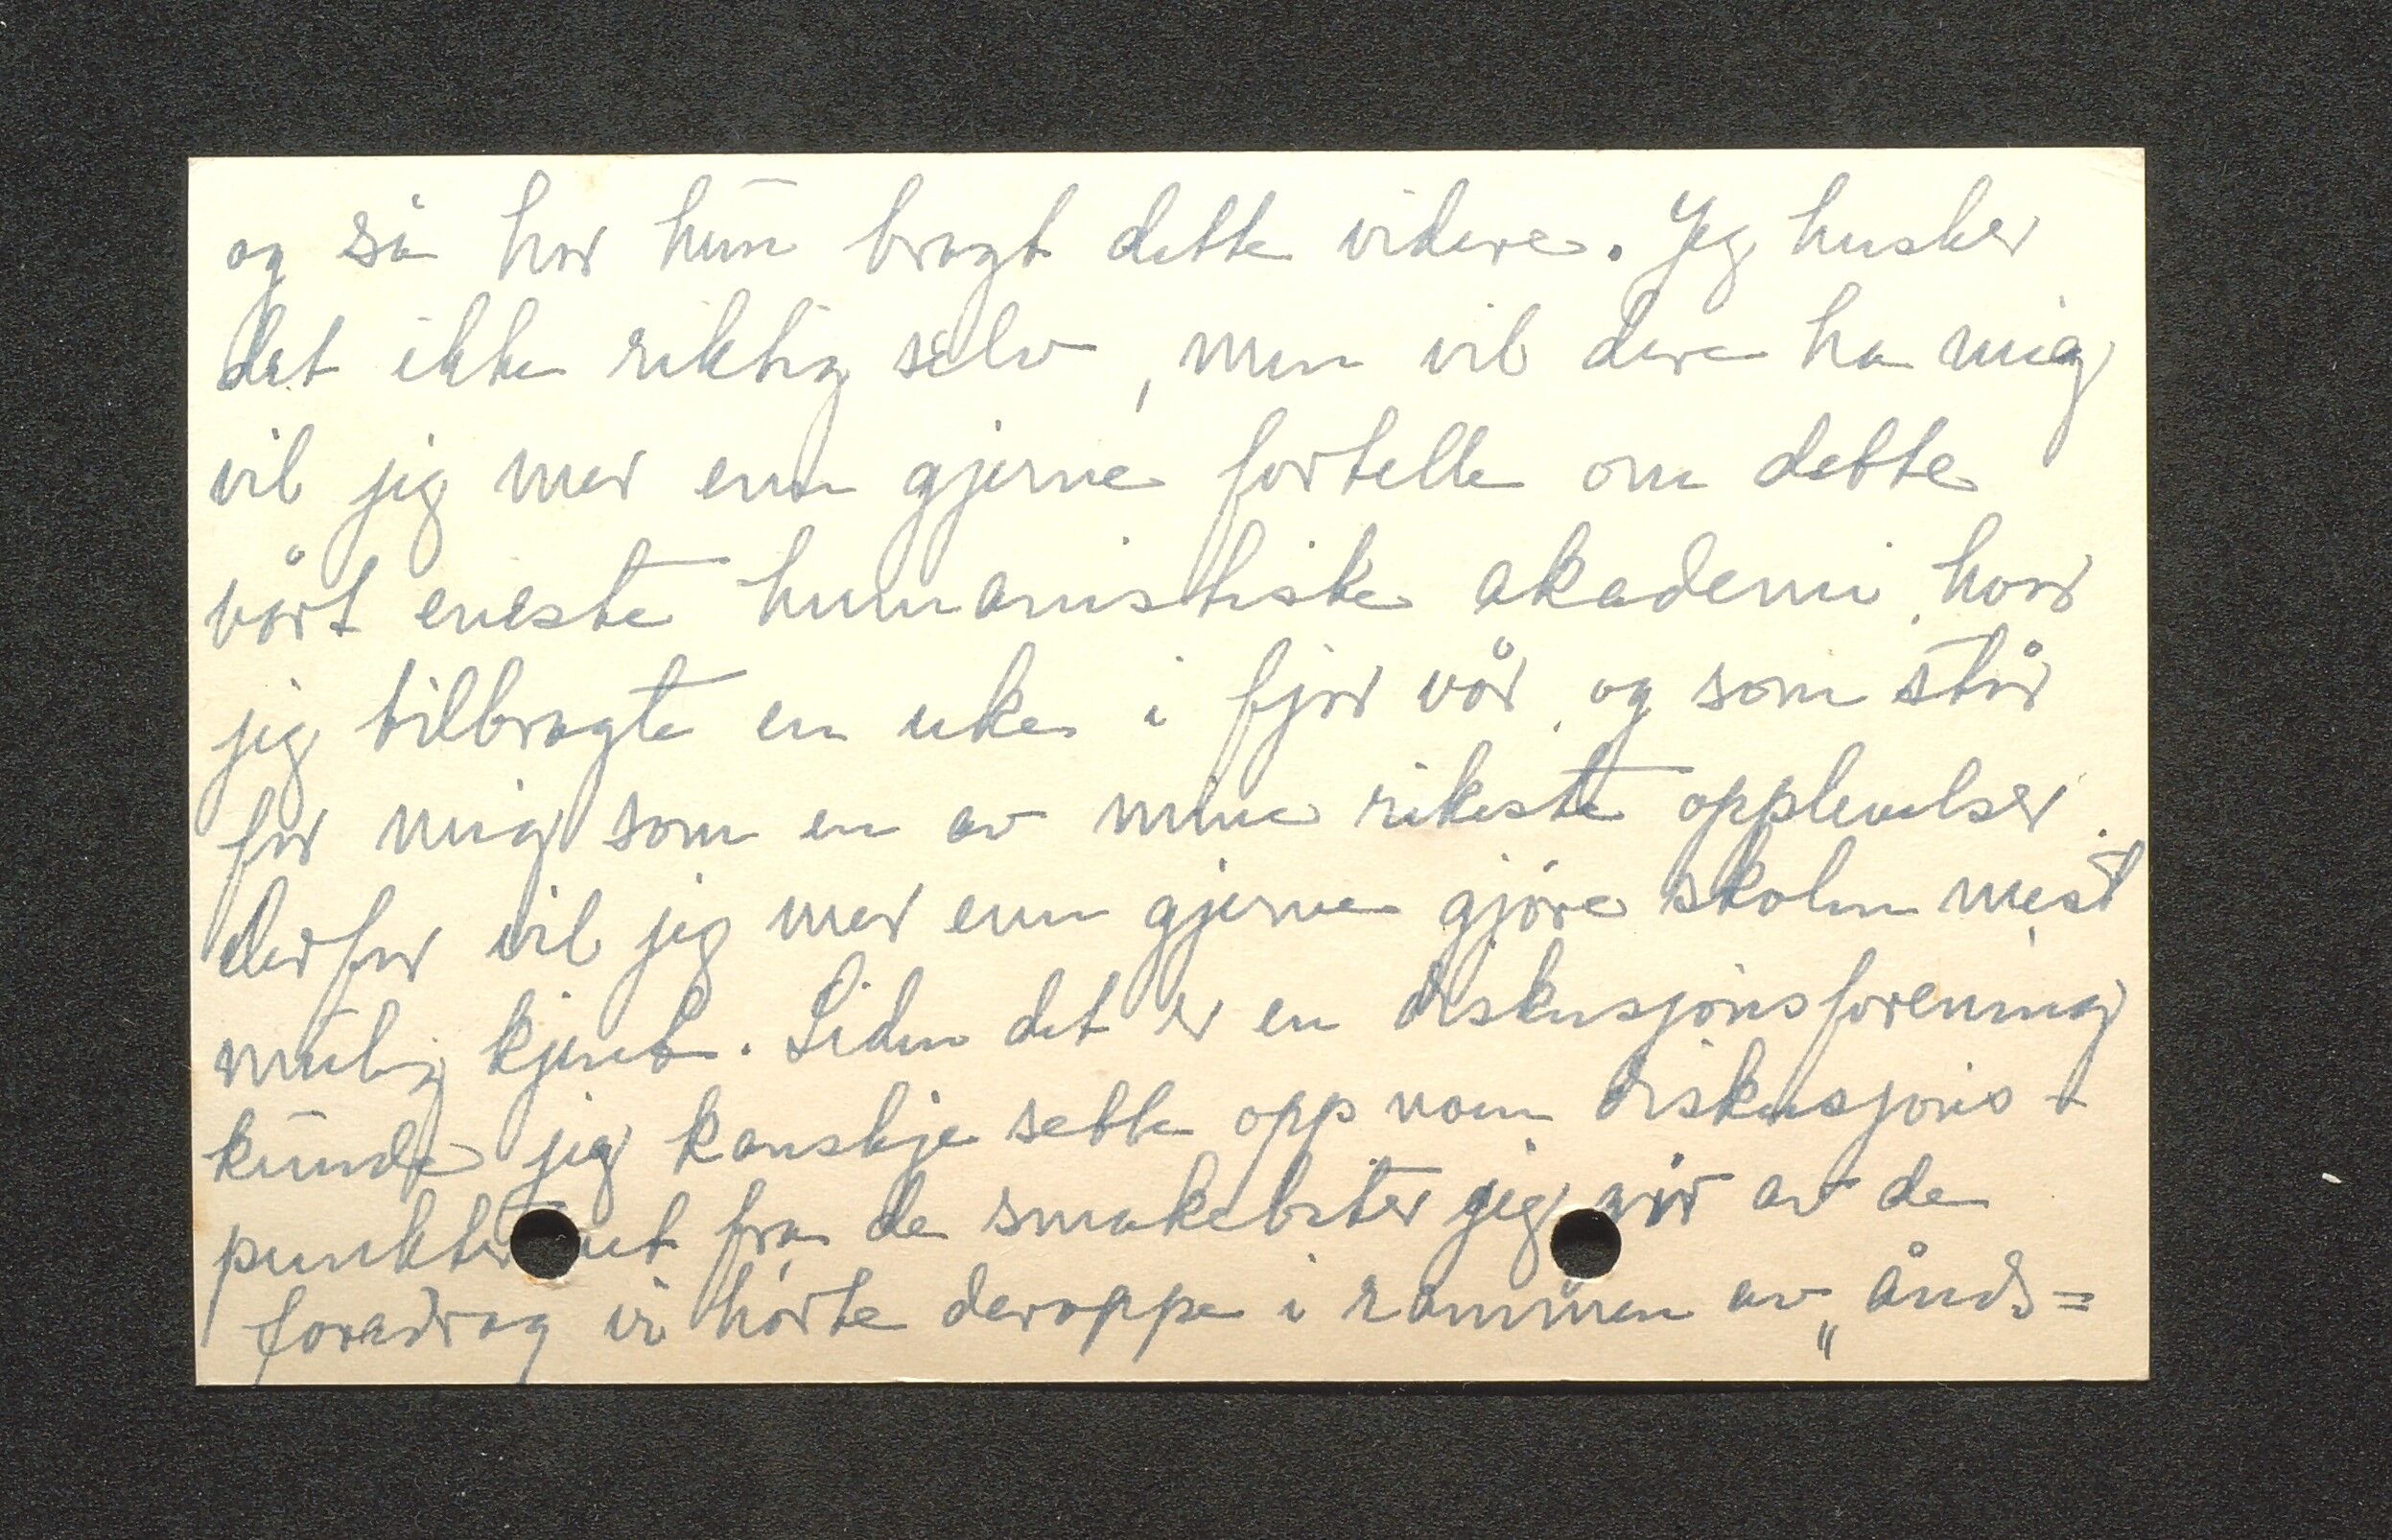 og så har hun bragt dette videre. Jeg husker
det ikke riktig selv, men vil dere ha mig
vil jeg mer enn gjerne fortelle om dette
vårt eneste humanistiske akademi, hvor
jeg tilbragte en uke i fjor vår, og som står
for mig som en av mine rikeste opplevelser.
derfor vil jeg mer enn gjerne gjöre skolen mest
mulig kjent. Siden det er en diskusjonsforening
kunde jeg kanskje sette opp noen diskusjons-
punkter ut fra de smakebiter jeg gir av de
foredrag vi hörte deroppe i rammen av „ånds=